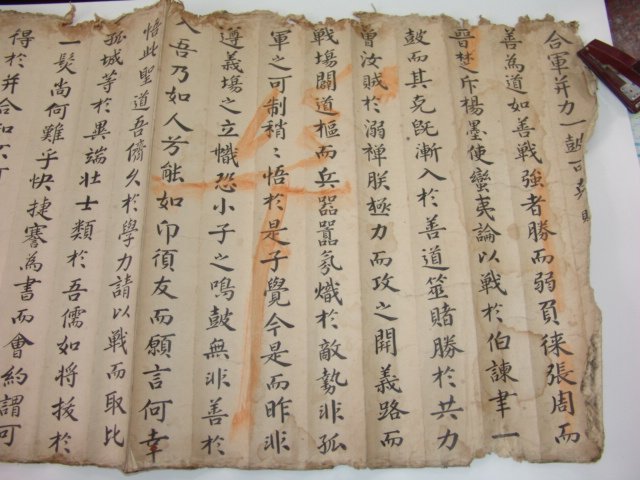 合軍并力一鼓可
善為道如善戰強者勝而弱負徠張周而
之斥楊墨使蠻夷論以戰於伯諫聿一
鼓而其克旣漸入於善道筮賭勝於共力
曾汝賊於溺禪朕極力而攻之開義路而
戰場闢道樞而兵嚣嚣氛熾於敵勢非孤
軍之可制稍〻悟於是子覺今是而昨非
遵義場之立幟恐小子之鳴鼓無非善於
人吾乃如人芳能如卬須友而願言何幸
悟此聖道吾儕久於學力請以戰而取比
孤城等於異端壯士類於吾儒如将拔於
一髮尚何難乎快捷謇為書而會約謂可
得於并合